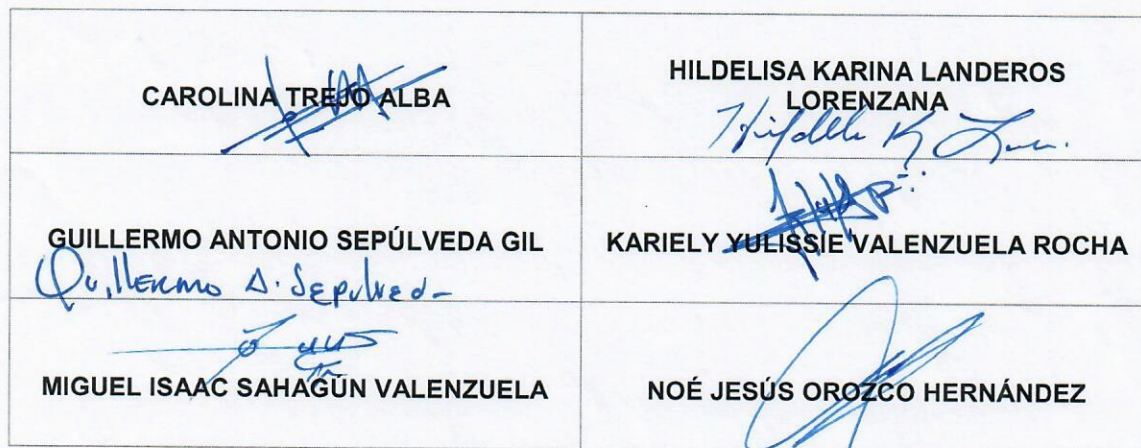 CAROLINA TREJO ALBA
HILDELISA KARINA LANDEROS
LORENZANA
GUILLERMO ANTONIO SEPÚLVEDA GIL
Guillermo A. Sepulveda
KARIELY YULISSIE VALENZUELA ROCHA
MIGUEL ISAAC SAHAGÚN VALENZUELA
NOÉ JESÚS OROZCO HERNÁNDEZ